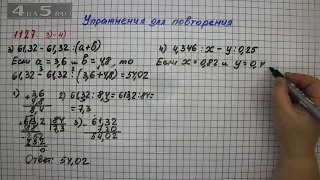 4DA5.RU
Упражнения для повторения
1127. 3)-4)
3) 61,32 - 61,32 : (a+b)
Если a = 3,6 и b = 4,8, то
61,32 - 61,32 : (3,6+4,8) = 54,02
1) 3,6
+ 4,8
8,4
2) 61,32 : 8,4 = 613,2 : 84 =
= 7,3
613,2 84
588 7,3
252
252
0
3) 61,32
- 7,30
54,02
Ответ: 54,02
4) 4,346 : x - y : 0,25
Если x = 0,82 и y = 0,4